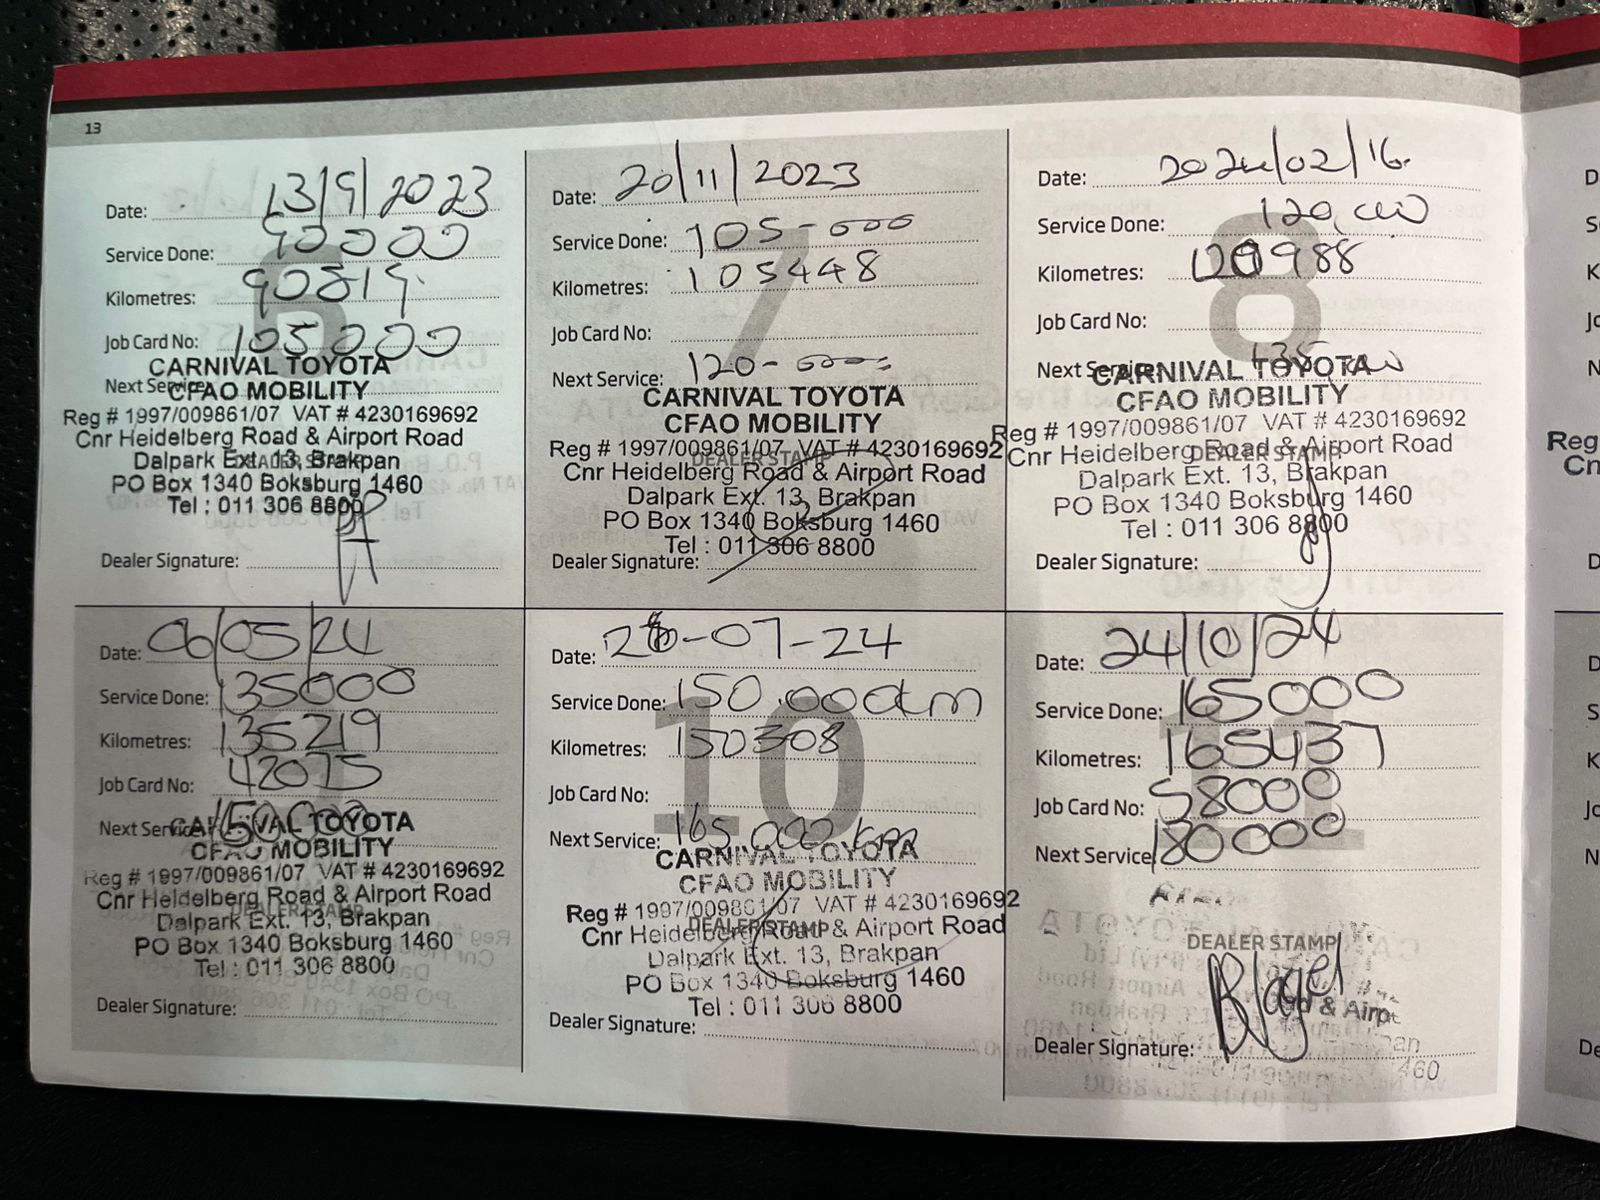 13
Date: 13/9/2023
Service Done: 90000
Kilometres: 90819
Job Card No: 105000
CARNIVAL TOYOTA
Next Service:
CFAO MOBILITY
Reg # 1997/009861/07 VAT # 4230169692
Cnr Heidelberg Road & Airport Road
Dalpark Ext. 13, Brakpan
PO Box 1340 Boksburg 1460
Tel : 011 306 8800
Dealer Signature:
Date: 20/11/2023
Service Done: 105-000
Kilometres: 105448
Job Card No:
Next Service: 120-000
7
CARNIVAL TOYOTA
CFAO MOBILITY
Reg # 1997/009861/07 VAT # 4230169692
DEALER STAMP
Cnr Heidelberg Road & Airport Road
Dalpark Ext. 13, Brakpan
PO Box 1340 Boksburg 1460
Tel : 011 306 8800
Dealer Signature:
Date: 2024/02/16.
Service Done: 120,000
Kilometres: 120988
8
Job Card No:
Next Service: 135 000
CARNIVAL TOYOTA
CFAO MOBILITY
Reg # 1997/009861/07 VAT # 4230169692
Cnr Heidelberg Road & Airport Road
DEALER STAMP
Dalpark Ext. 13, Brakpan
PO Box 1340 Boksburg 1460
Tel : 011 306 8800
Dealer Signature:
Date: 06/05/24
Service Done: 135000
Kilometres: 135219
Job Card No: 42075
Next Service: 150000
CARNIVAL TOYOTA
CFAO MOBILITY
Reg # 1997/009861/07 VAT # 4230169692
Cnr Heidelberg Road & Airport Road
DEALER STAMP
Dalpark Ext. 13, Brakpan
PO Box 1340 Boksburg 1460
Tel : 011 306 8800
Dealer Signature:
Date: -07-24
Service Done: 150.000km
Kilometres: 150308
10
Job Card No:
Next Service: 165.000 km
CARNIVAL TOYOTA
CFAO MOBILITY
Reg # 1997/009861/07 VAT # 4230169692
DEALER STAMP
Cnr Heidelberg Road & Airport Road
Dalpark Ext. 13, Brakpan
PO Box 1340 Boksburg 1460
Tel : 011 306 8800
Dealer Signature:
Date: 24/10/24
Service Done: 165000
Kilometres: 165437
11
Job Card No: 58000
Next Service: 180000
DEALER STAMP
Dealer Signature:
460
Reg